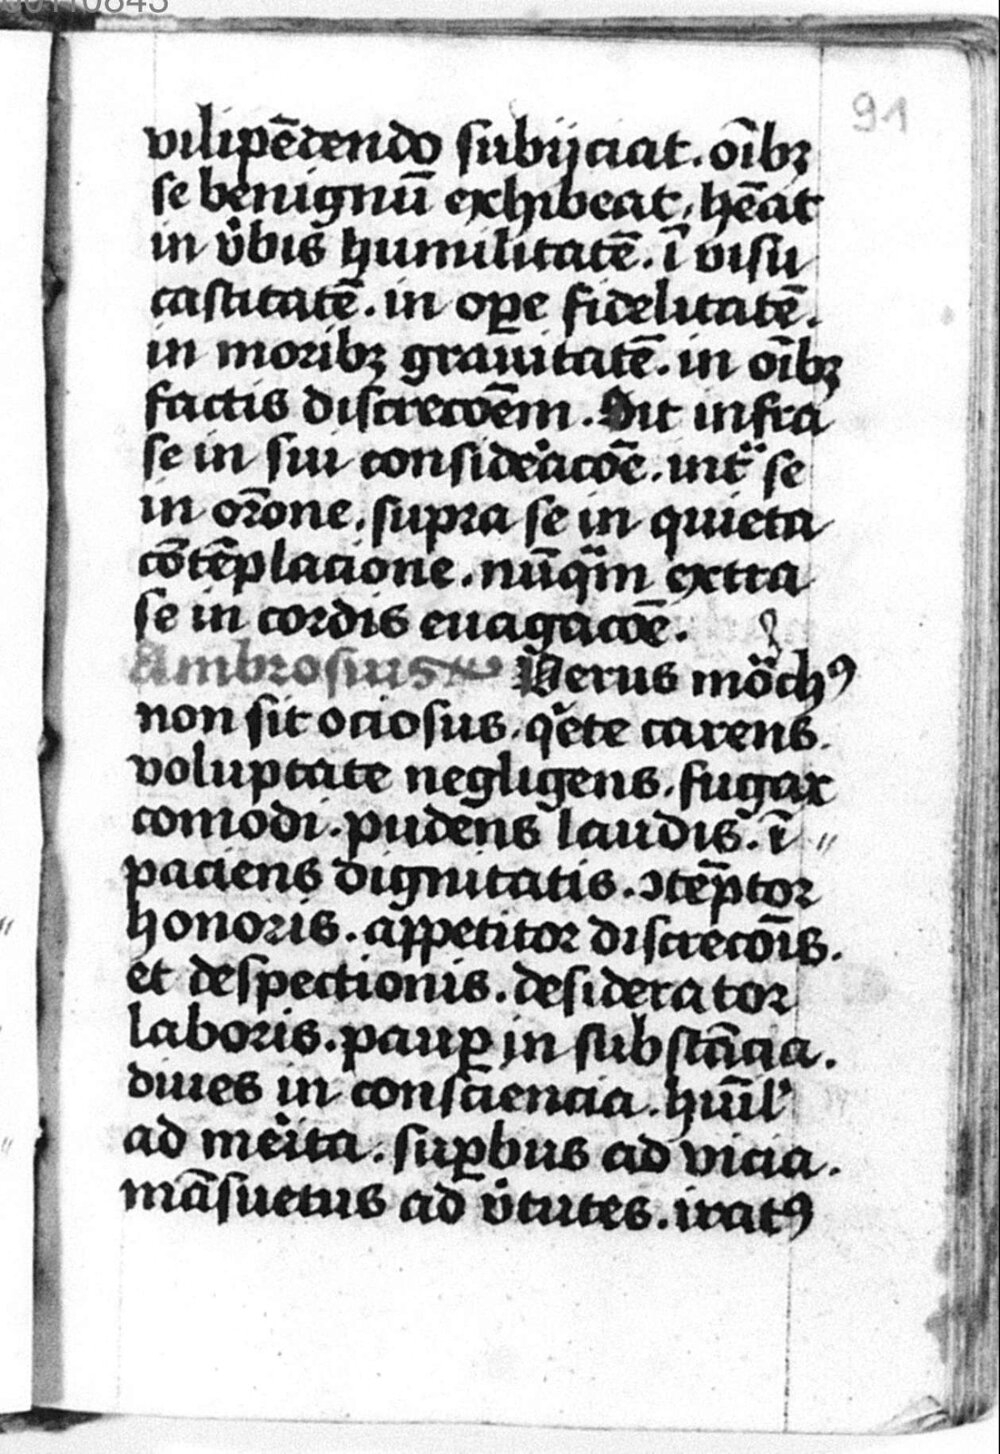 91
vilipēdendo subijciat. oībꝫ
se benignū exhibeat, hēat
in v̓bis humilitatē. ī visu
castitatē. in oꝑe fidelitatē.
in moribꝫ grauitatē. in oībꝫ
factis discrecōēm. Sit infra
se in sui considẽacōe. int̃ se
in or̄one. supra se in quieta
cōtēplacione. nūqͣm extra
se in cordis euagacōe.
Ambrosius Verus möchꝰ
non sit ociosus. qͥete carens.
voluptate negligens. fugax
comodi. pudens laudis. ī〃
paciens dignitatis. ↄtēptor
honoris. appetitor discrecōis.
et despectionis. desiderator
laboris. pauꝑ in substācia.
diues in consciencia. hūil̓
ad mẽita. suꝑbus ad vicia.
māsuetus ad v̓tutes. iratꝰ